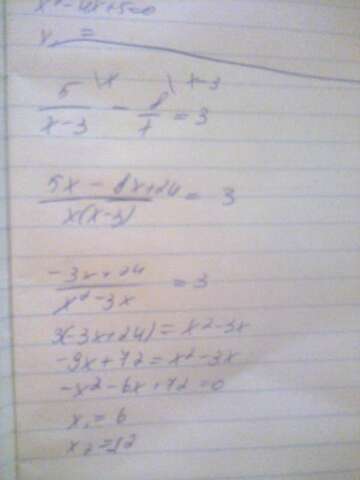 x² - 4x + 5 = 0
x₁ =
5 \x / x-3 - 8 \x-3 / x = 3
5x - 8x + 24 / x(x-3) = 3
-3x + 24 / x² - 3x = 3
3(-3x+24) = x² - 3x
-9x + 72 = x² - 3x
-x² - 6x + 72 = 0
x₁ = 6
x₂ = 12